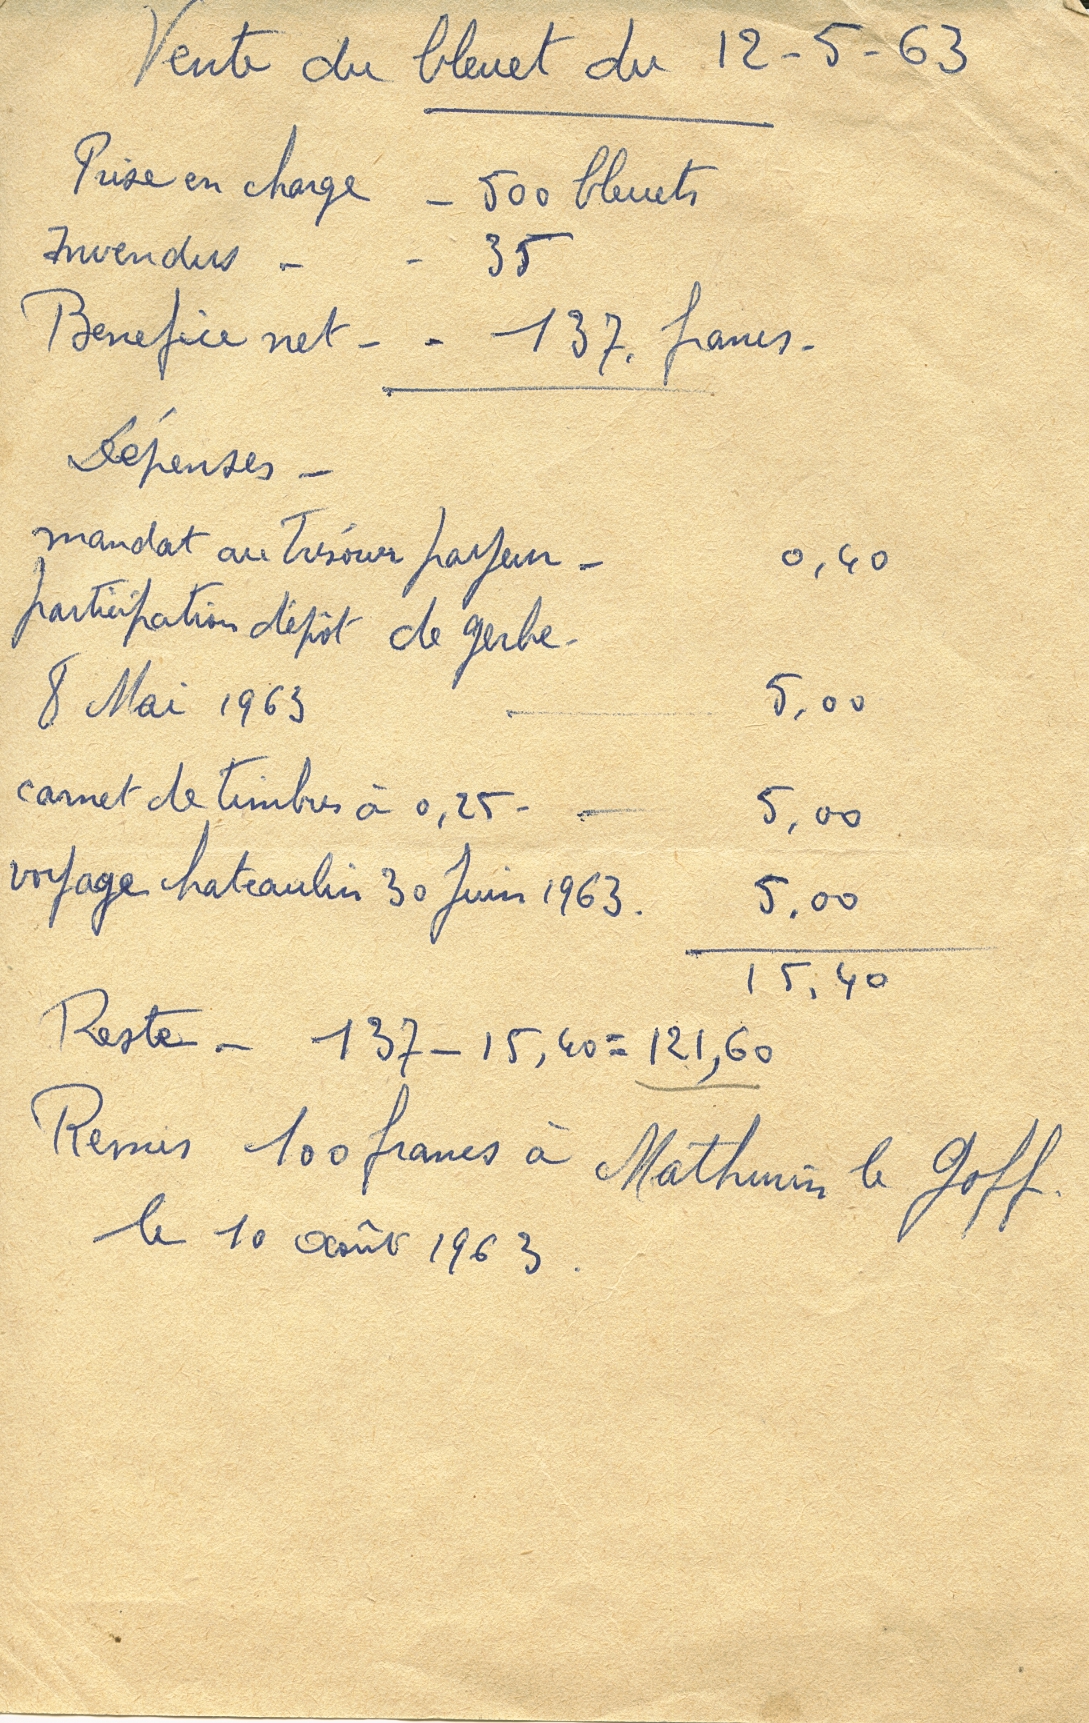 Vente du bleuet du 12-5-63
Prise en charge - 500 bleuets
Invendus - - 35
Benefice net - - 137. francs -
Dépenses -
mandat au Trésorier payeur - 0,40
participation dépôt de gerbe -
8 Mai 1963 — 5,00
carnet de timbres à 0,25 - — 5,00
voyage chateaulin 30 Juin 1963. 5,00
15,40
Reste - 137 - 15,40 = 121,60
Remis 100 francs à Mathurin le Goff.
le 10 août 1963.